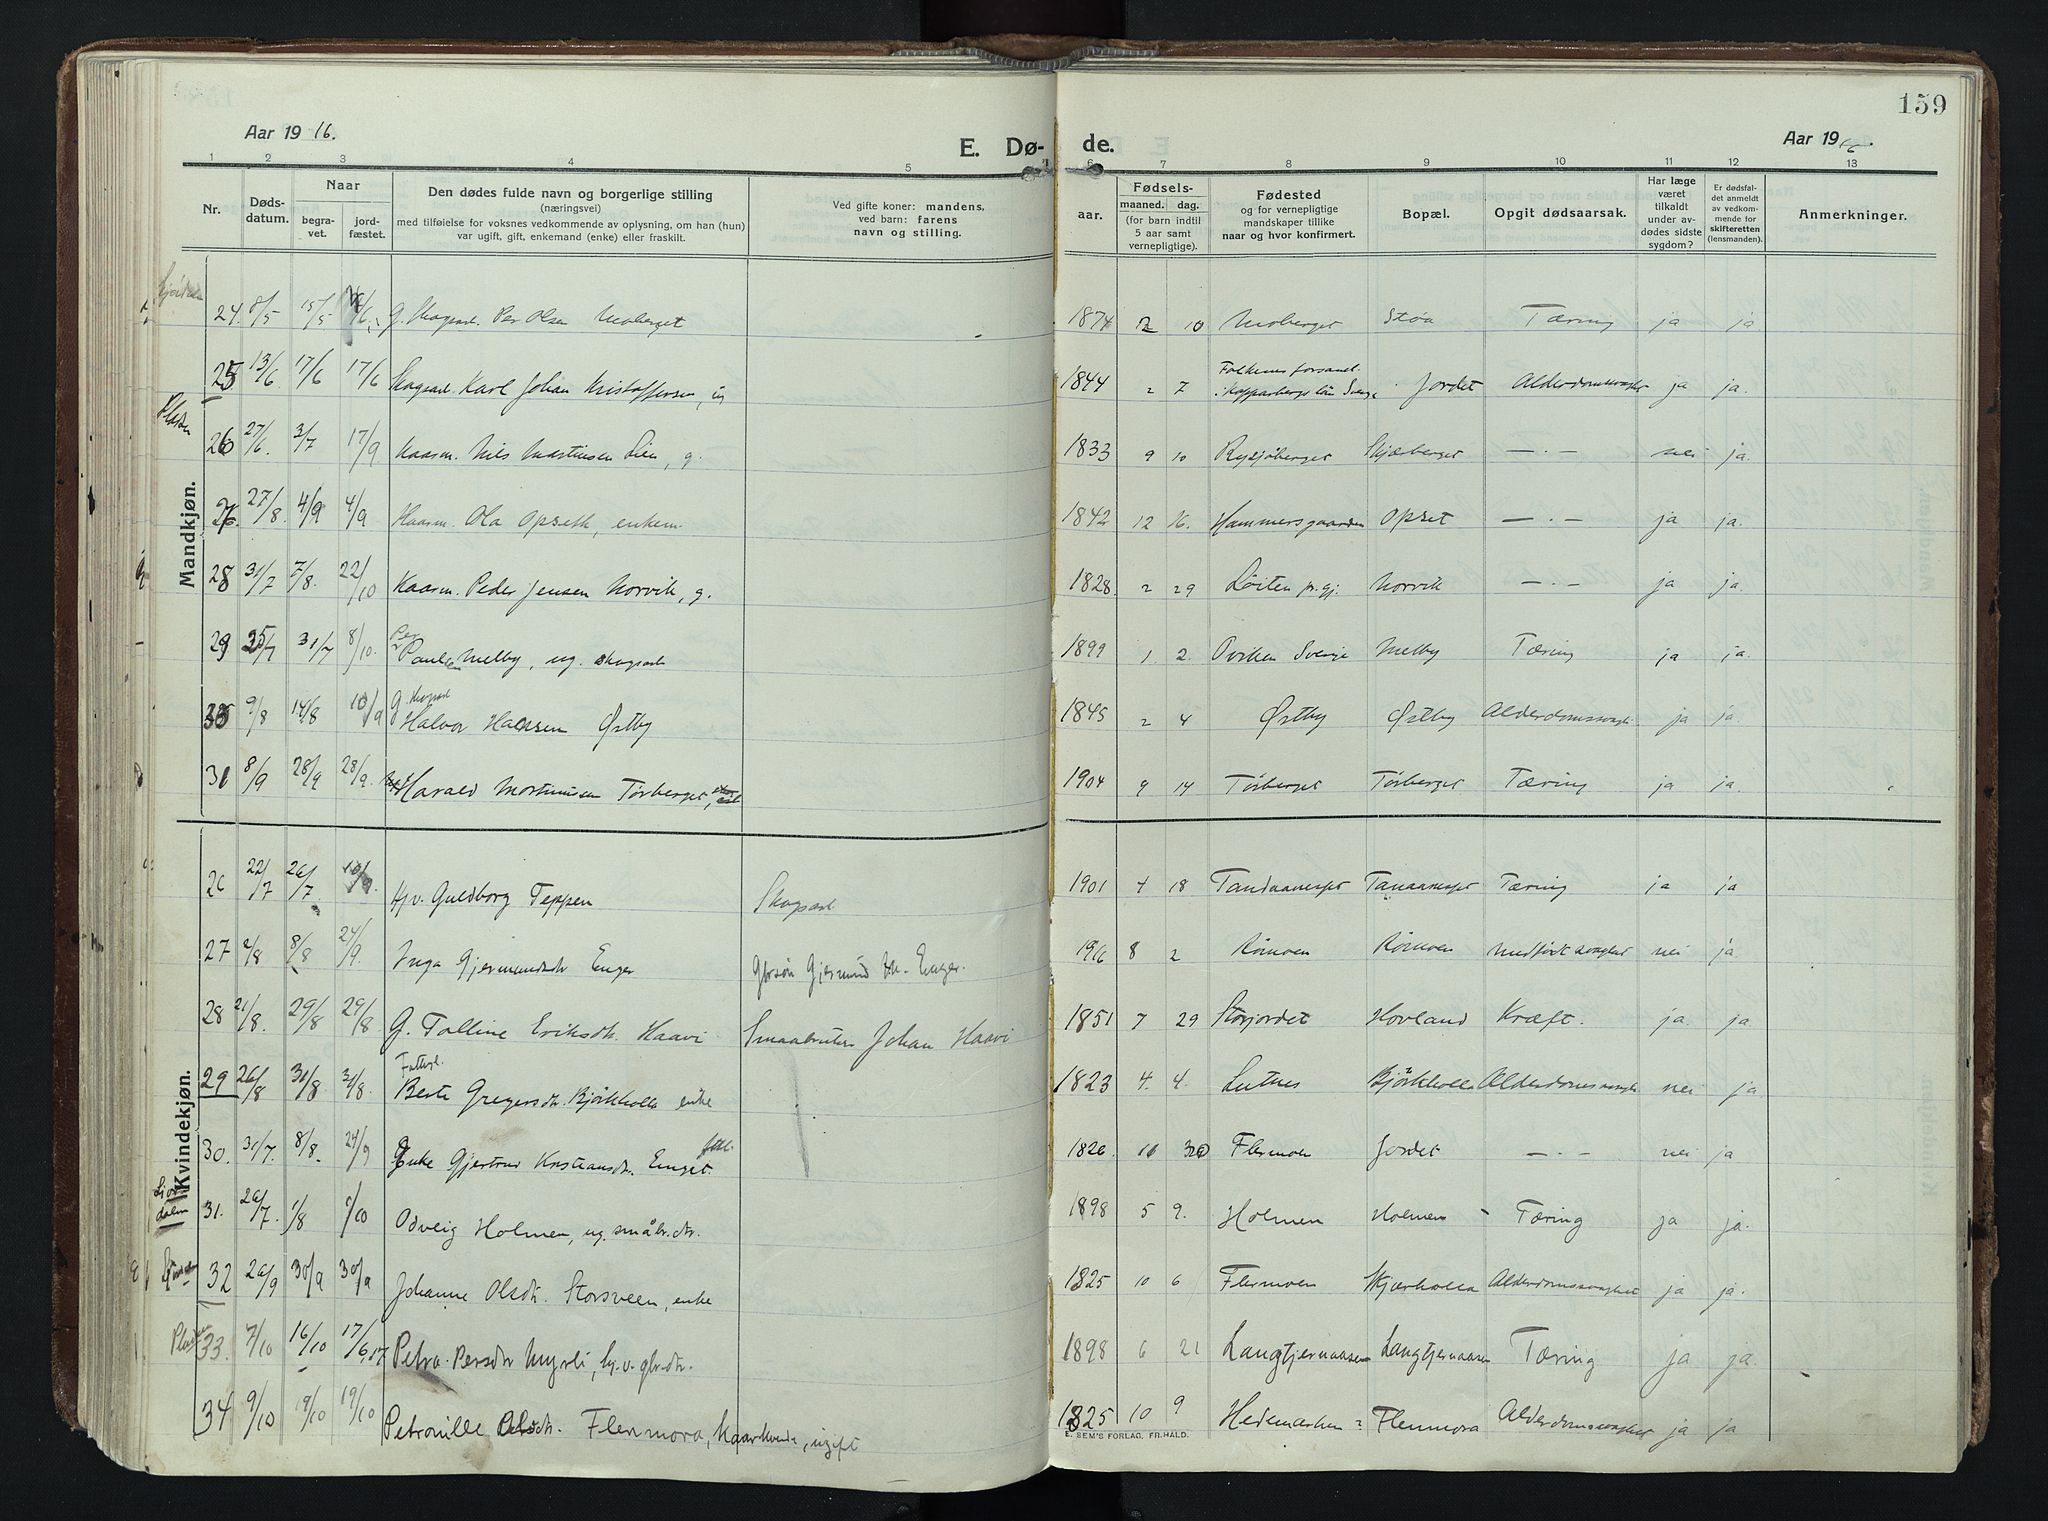 159
Aar 1916.
E. Dø-
de.
Aar 1916.
1 2 3 4 5 6 7 8 9 10 11 12 13
Nr.
Døds-
datum.
Naar
begra-
vet.
jord-
fæstet.
Den dødes fulde navn og borgerlige stilling
(næringsvei)
med tilføielse for voksnes vedkommende av oplysning, om han (hun)
var ugift, gift, enkemand (enke) eller fraskilt.
Ved gifte koner: mandens,
ved barn: farens
navn og stilling.
aar.
Fødsels-
maaned. dag.
(for barn indtil
5 aar samt
vernepligtige).
Fødested
og for vernepligtige
mandskaper tillike
naar og hvor konfirmert.
Bopæl.
Opgit dødsaarsak.
Har læge
været
tilkaldt
under av-
dødes sidste
sygdom?
Er dødsfal-
det anmeldt
av vedkom-
mende for
skifteretten
(lensmanden).
Anmerkninger.
Mandkjøn.
24. 8/5 15/5 G. Skogsarb. Per Olsen Moberget 1874 2 10 Moberget Støa Tæring ja ja
25 13/6 17/6 17/6 Skogsarb. Karl Johan Kristoffersen, ug 1844 2 7 Kopparbergs län Sverige Jordet Alderdomssvaghet ja ja.
Plassen
26 27/6 3/7 17/9 Kaarm. Nils Martinsen Lien, g. 1833 9 10 Rysjøberget Skjærberget — . — nei ja.
27. 27/8. 4/9 4/9 Kaarm. Ola Opseth, enkem. 1842 12 16. Hammersgaarden Opset — . — ja ja.
28 31/7 7/8. 22/10 Kaarm. Peder Jensen Norvik, g. 1828. 2 29 Løiten pr.gj. Norvik — . — ja ja.
29 25/7 31/7 8/10. Per Paulsen Melby, ug. skogsarb 1899 1 2. Oviken Sverige Melby Tæring ja ja.
30 9/8 14/8 10/9 G. skogsarb Halvor Hansen Østby 1845 2 4 Østby Østby Alderdomssvagh. ja ja.
31 8/9 28/9 28/9. Harald Mortinusen Tørberget, 1904 9 14 Tørberget Tørberget Tæring ja ja.
Kvindekjøn.
26 22/7 26/7 10/9. Hj.v. Guldborg Teppen Skogsarb. 1901 4 18 Tandaaneset Tanaaneset Tæring ja ja
27 2/8 8/8 24/9. Inga Gjermundsdtr Enger Gbrsøn Gjermund M. Enger. 1916 8 2 Rømoen Rømoen medfødt svaghet nei ja.
28 21/8. 29/8 29/8 G. Talline Eriksdtr. Haavi Smaabruker Johan Haavi 1851 7 29 Storjordet Hovland Kræft. ja ja
29 26/8 31/8 31/8. Fattigl. Berte Gregersdtr. Bjørkholla enke 1823 4. 4. Lutnes Bjørkholla Alderdomssvagh. nei ja
30. 31/7. 8/8. 24/9 Enke Gjertrud Kristiansdtr. Enget. 1826. 10 30 Flermoen Jordet — . — nei ja
31. 26/7. 1/8 8/10 Odveig Holmen, ug. småbr.dtr. 1898 5 9. Holmen Holmen Tæring ja ja.
32 26/9 30/9 30/9 Johanne Olsdtr. Storsveen, enke 1825 10 6 Flermoen Skjærholla Alderdomssvaghet ja ja.
Plassen
33. 7/10 16/10 17/6.17 Petra Persdtr Myrli, hj.v. gbr.dtr. 1898 6 21 Langtjernaasen Langtjernaasen Tæring ja ja.
34 9/10 19/10 19/10 Petronille Olsdtr. Flenmora, kaarkvinde, ugift 1825 10 9 Hedemarken? Flenmora Alderdomssvaghet ja ja
E. SEM'S FORLAG, FR.HALD.